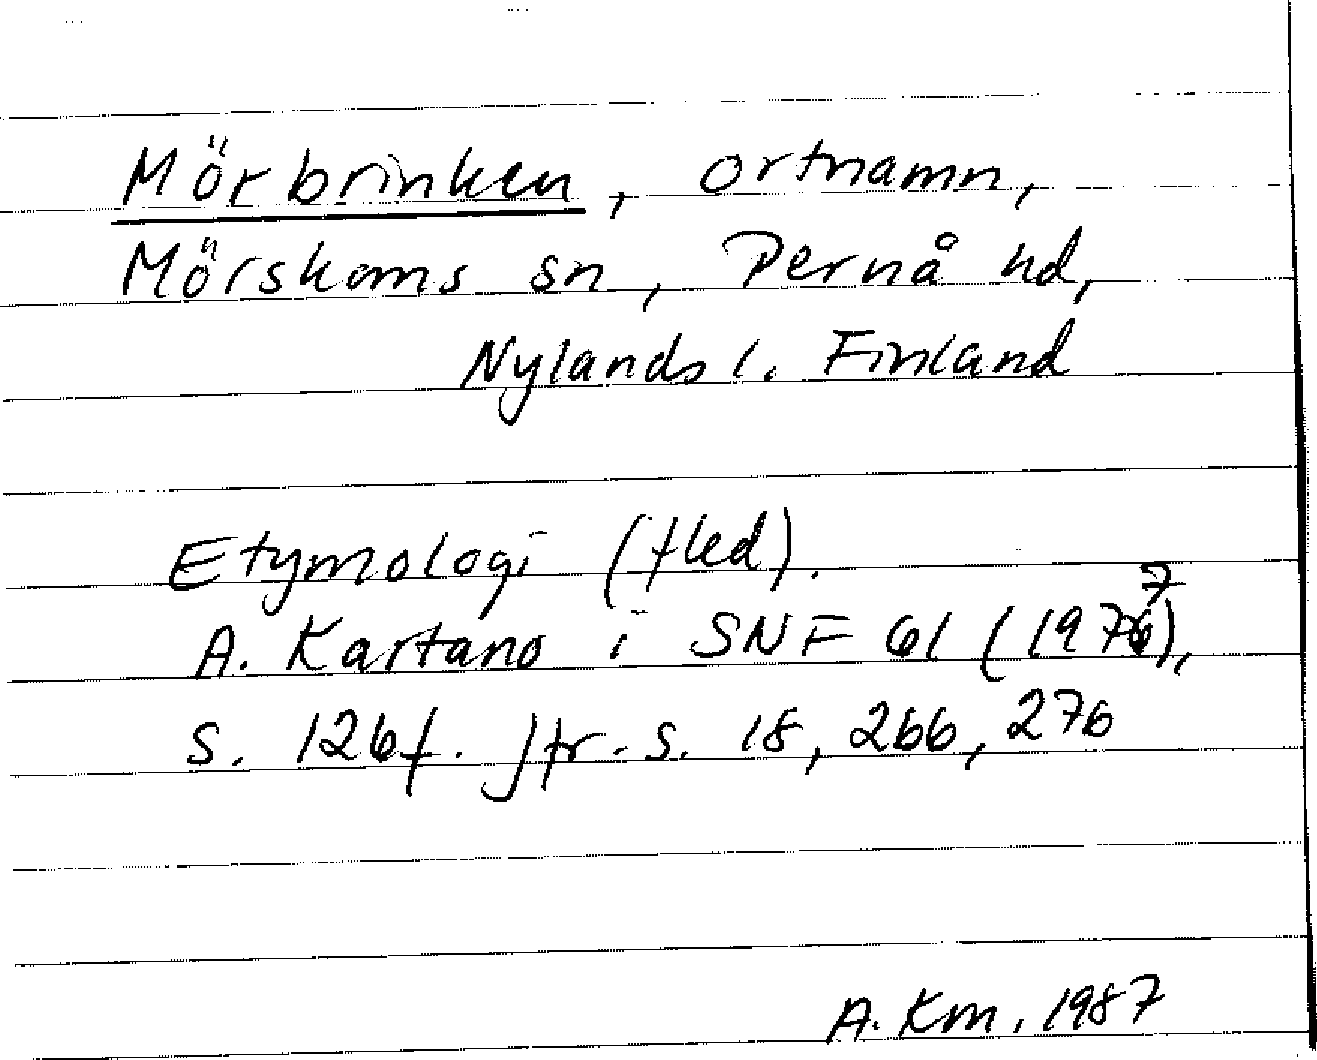 Mörbrinken, ortnamn,
Mörskoms sn, Pernå hd,
Nylands l. Finland
Etymologi (fled).
A. Kartano i SNF 61 (1977),
s. 126f. Jfr. s. 18, 266, 276
A. Km. 1987